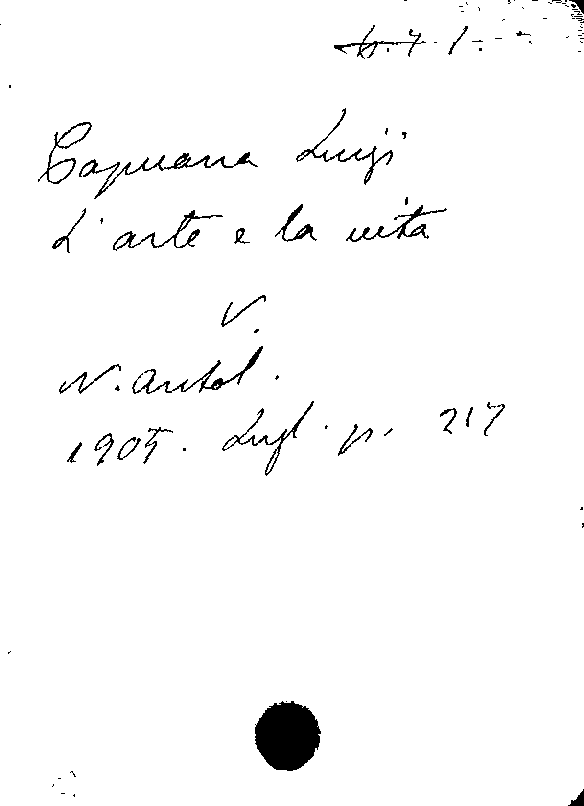 Capuana Luigi
L'arte e la vita
V.
N. Antol.
1905. Lugl. p. 217